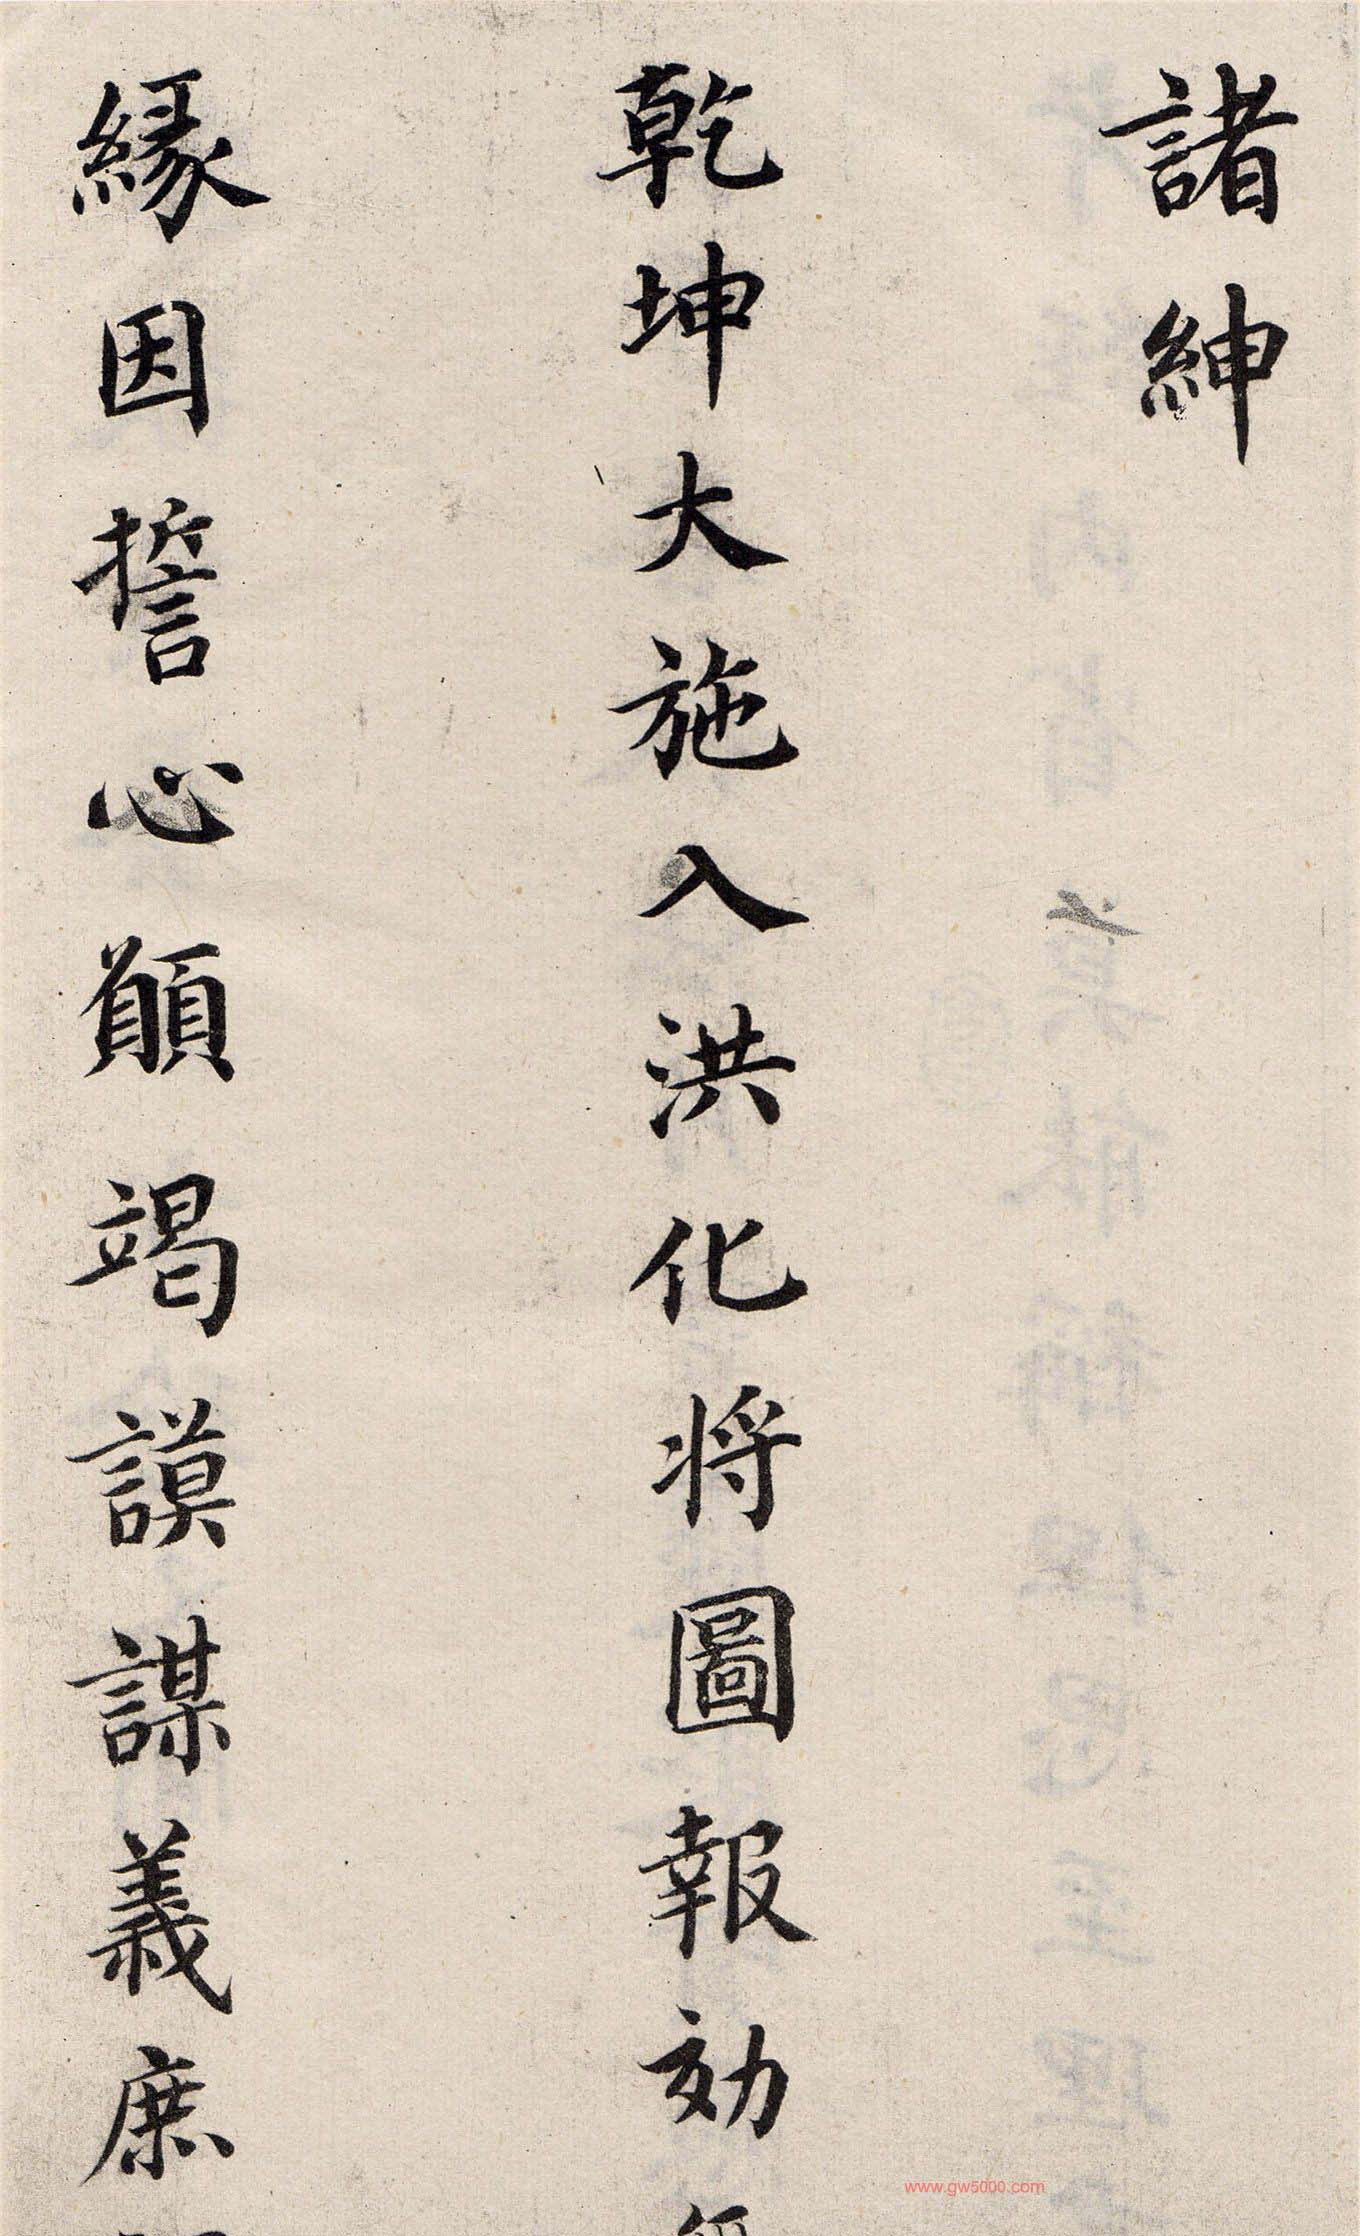 諸紳
乾坤大施入洪化将圖報効
縁因誓心願竭謨謀義庶
www.gw5000.com